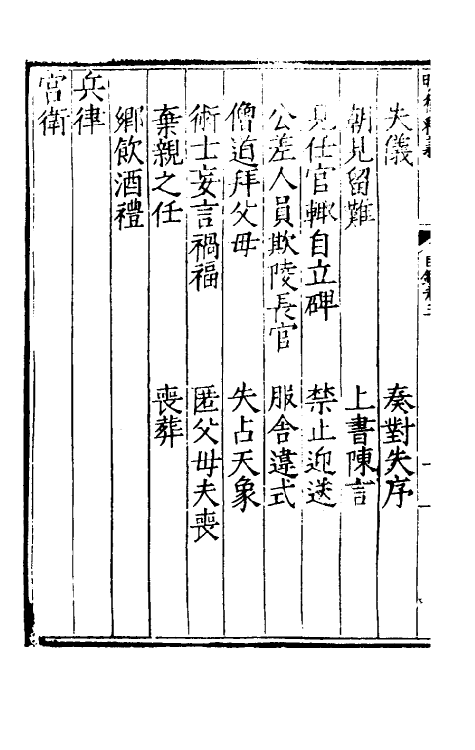 失儀 奏對失序
朝見留難 上書陳言
見任官輒自立碑 禁止迎送
公差人員欺陵長官 服舎違式
僧道拜父母 失占天象
術士妄言禍福 匿父母夫喪
棄親之任 喪葬
鄉飲酒禮
兵律
宫衛